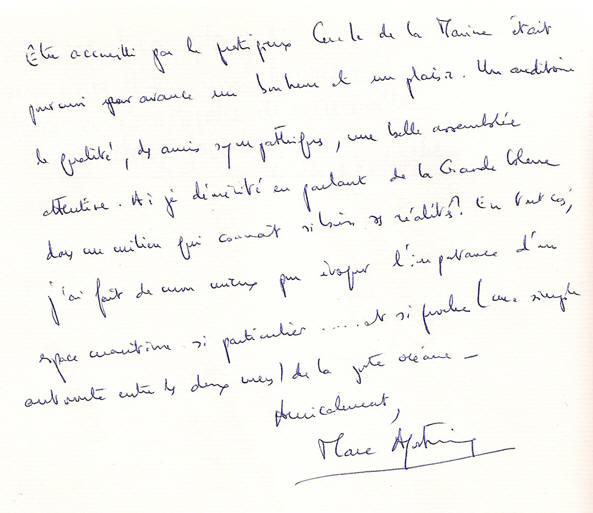 Être accueilli par le prestigieux Cercle de la Marine était
pour moi par avance un bonheur et un plaisir. Un auditoire
de qualité, des amis sympathiques, une belle assemblée
attentive. Ai je démérité en parlant de la Grande bleue
dans un milieu qui connaît si bien ses réalités? En tout cas,
j'ai fait de mon mieux pour évoquer l'importance d'un
espace maritime si particulier ..... et si proche (une simple
autoroute entre les deux mers) de la porte océane -
Amicalement,
Marc